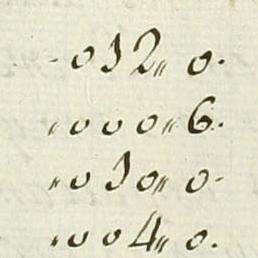 -012„ 0.
„000„6.
„010„ 0-
„004„ 0.